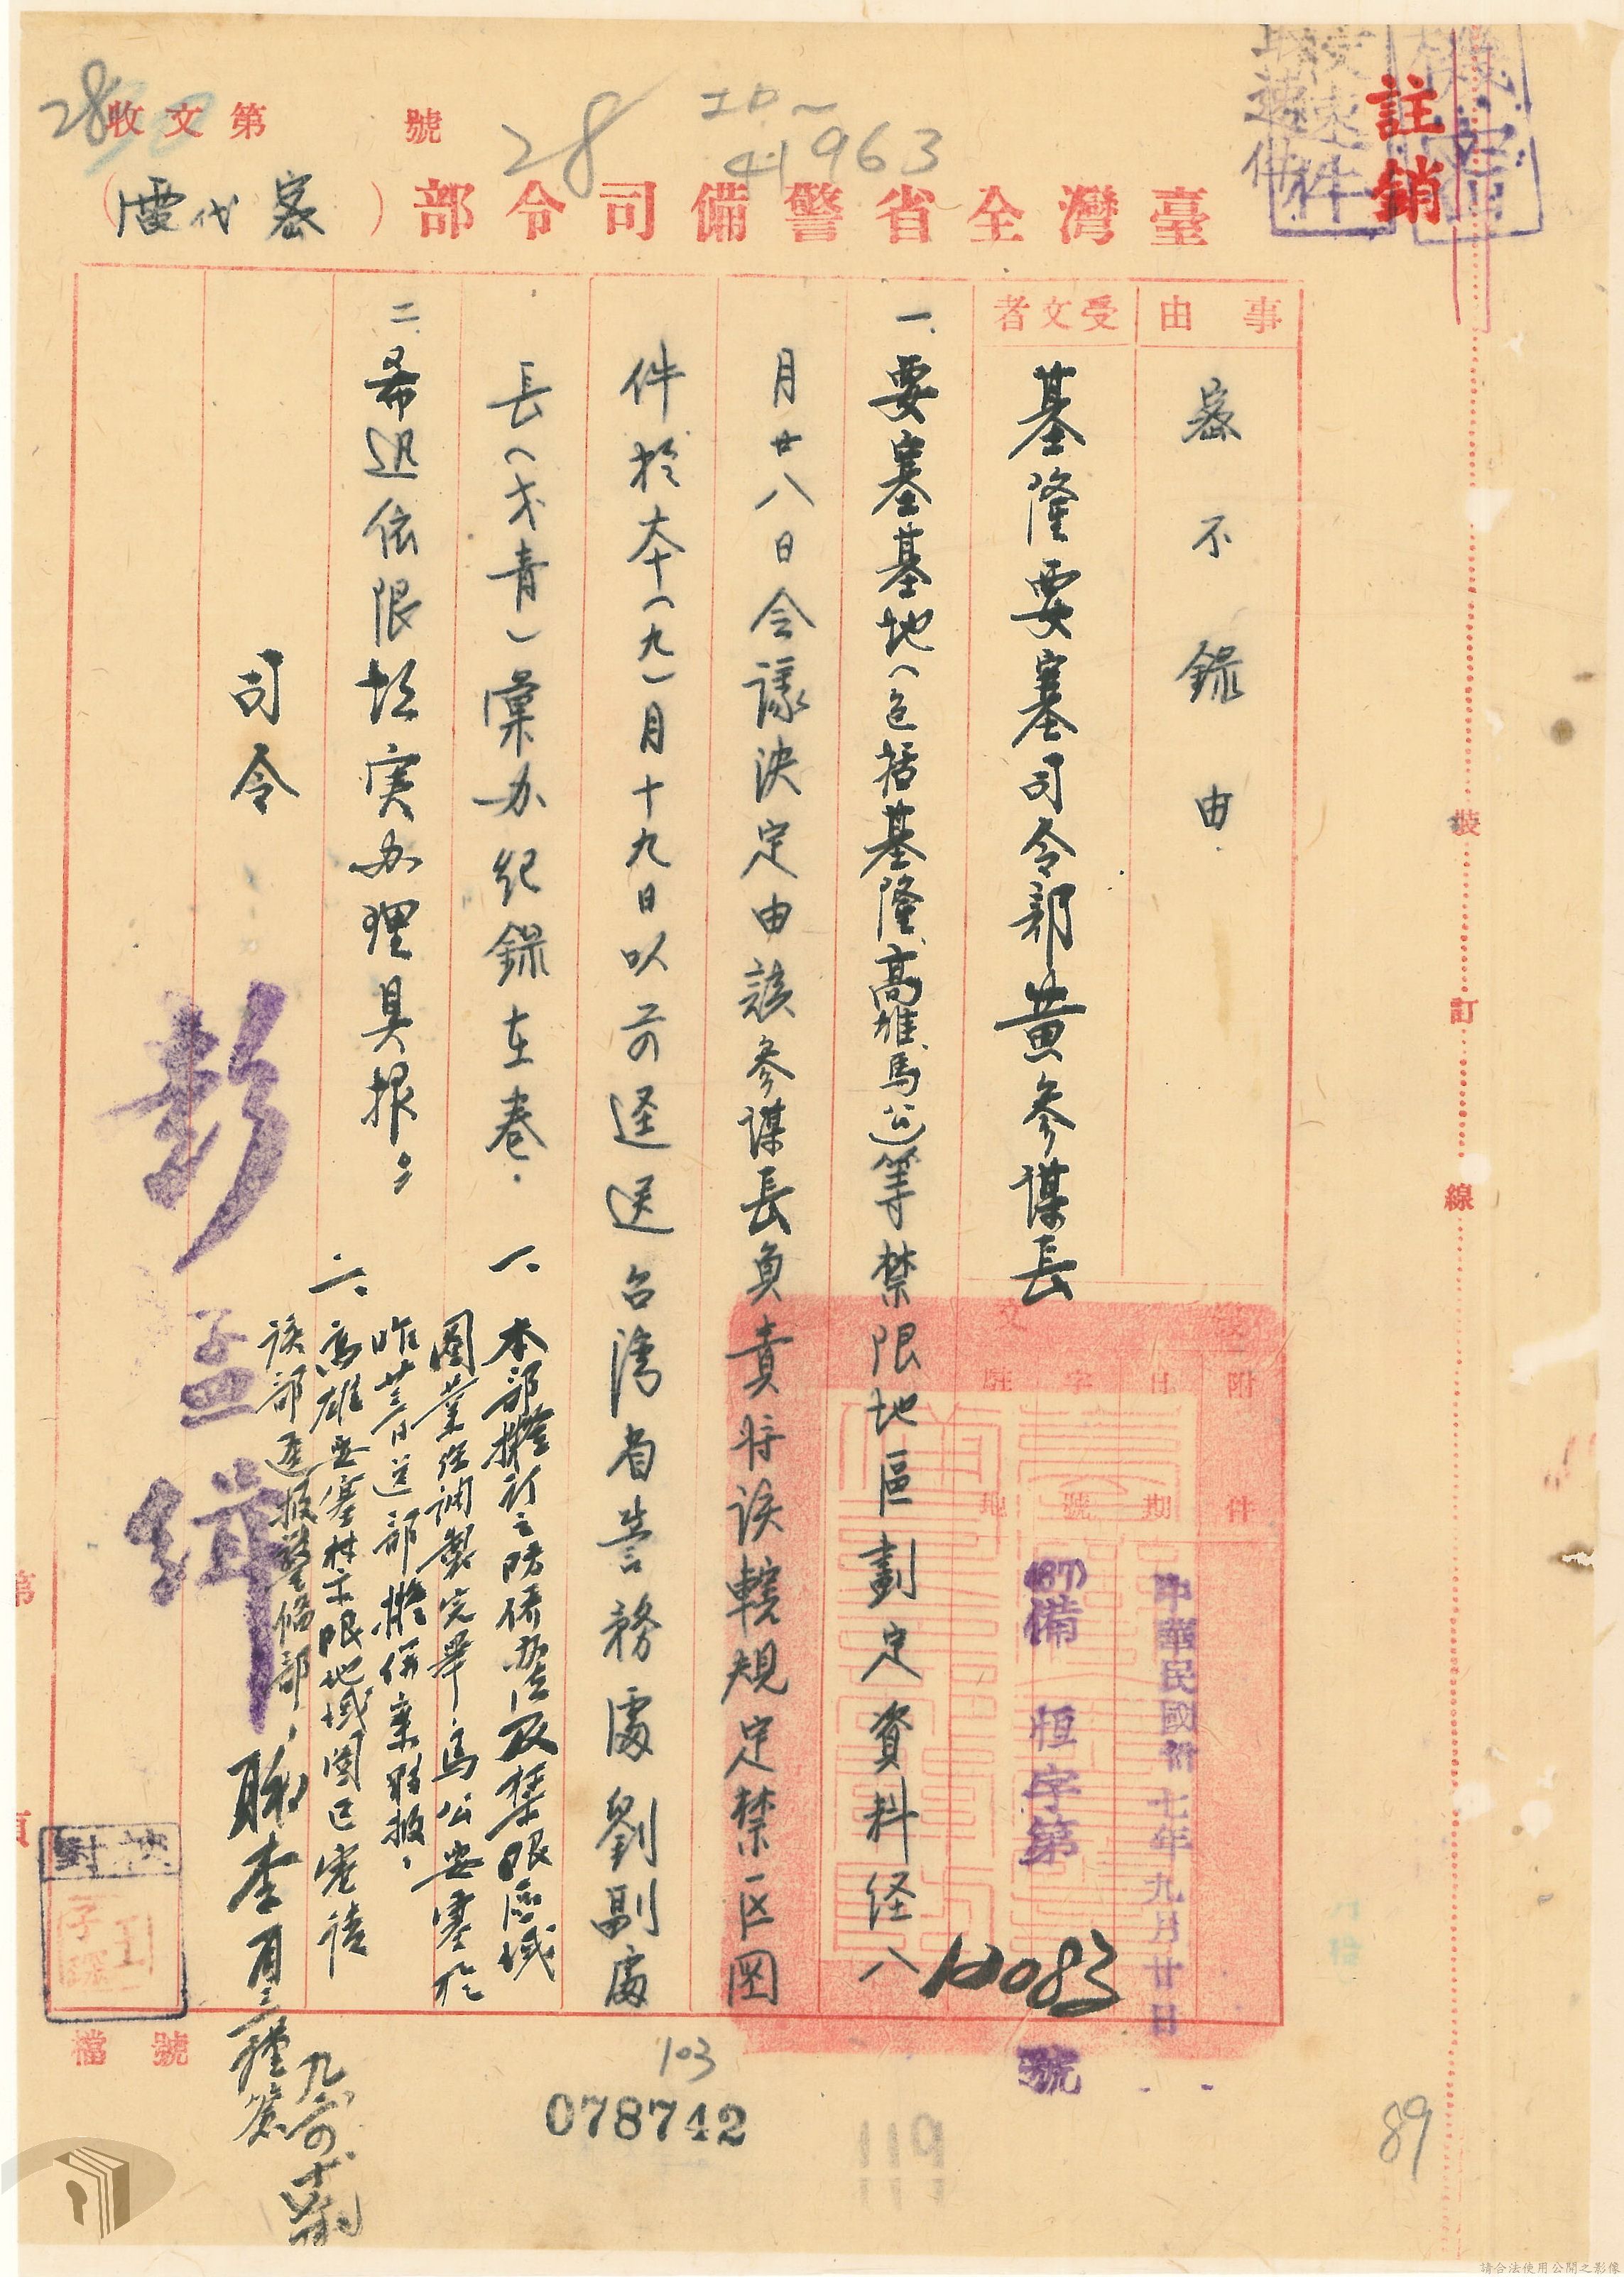 最速件
機密
註銷
收文第 號
28
28
41963
臺灣全省警備司令部(代電)密
事由
密不錄由
受文者
基隆要塞司令部黃參謀長
附件
日期
字號
駐地
中華民國卅七年九月廿日
(37)備恒字第
10083
號
一、要塞基地(包括基隆、高雄、馬公)等禁限地區劃定資料経八
月廿八日会議決定由該參謀長負責將該轄規定禁区図
件於本(九)月十九日以前逕送台湾省警務處劉副處
長(戈青)彙办紀錄在卷.
二、希迅依限切实办理具报。
司令
彭孟緝
一、本部擬訂之防衛办法及禁限區域
圖業經調製完畢,馬公要塞於
昨廿三日送部擬併案彙报,
二、高雄要塞禁限地域圖已完竣
該部逕报警備部,
職李
謹簽
校對
裝
訂
線
第
頁
檔號
103
078742
119
89
請合法使用公開之影像